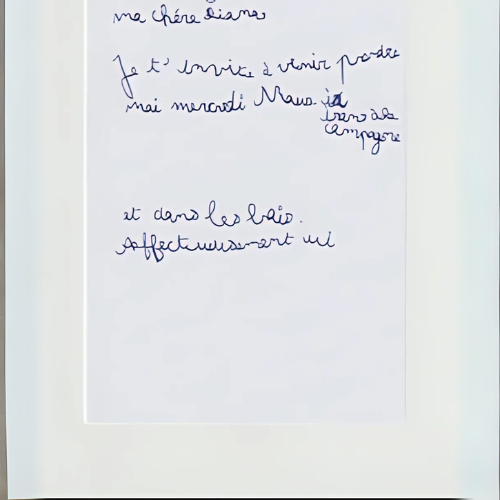 ma chére Diana
Je t'invite à venir prendre
mai mercredi Maus
dans la
campagne
et dans les bois.
Affectueusement